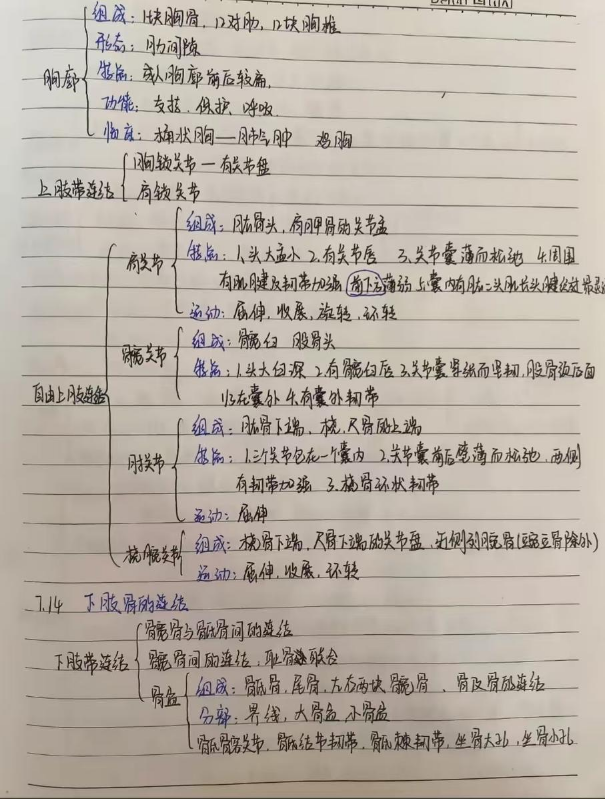 胸廓
组成：1块胸骨，12对肋，12块胸椎
形态：肋间隙
特点：成人胸廓前后较扁，
功能：支持，保护，呼吸
临床：桶状胸—肺气肿 鸡胸
上肢带连结
胸锁关节—有关节盘
肩锁关节
自由上肢连结
肩关节
组成：肱骨头，肩胛骨的关节盂
特点：1.头大盂小 2.有关节唇 3.关节囊薄而松弛 4.周围
有肌腱及韧带加强 前下方薄弱 5.囊内有肱二头肌长头腱
运动：屈伸，收展，旋转，环转
髋关节
组成：髋臼 股骨头
特点：1.头大臼深 2.有髋臼唇 3.关节囊紧张而坚韧，股骨颈后面
1/3在囊外 4.有囊外韧带
肘关节
组成：肱骨下端，桡，尺骨的上端
特点：1.三个关节包在一个囊内 2.关节囊前后壁薄而松弛，两侧
有韧带加强 3.桡骨环状韧带
运动：屈伸
桡腕关节
组成：桡骨下端，尺骨下端的关节盘，近侧列腕骨(豌豆骨除外)
运动：屈伸，收展，环转
7.14 下肢骨的连结
下肢带连结
髋骨与骶骨间的连结
髋骨间的连结：耻骨联合
骨盆
组成：骶骨，尾骨，左右两块髋骨，骨及骨的连结
分部：界线，大骨盆 小骨盆
骶髂关节，骶结节韧带，骶棘韧带，坐骨大孔，坐骨小孔